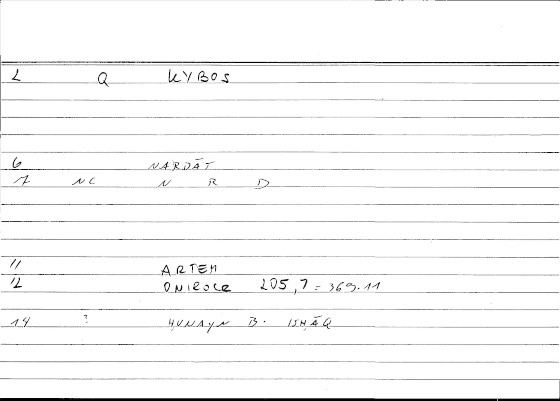 2 Q KYBOS
6 NARDĀT
7 NC N R D
11 ARTEM
12 ONIROCR 205,7 = 369.11
14 ? ḤUNAYN B. ISḤĀQ